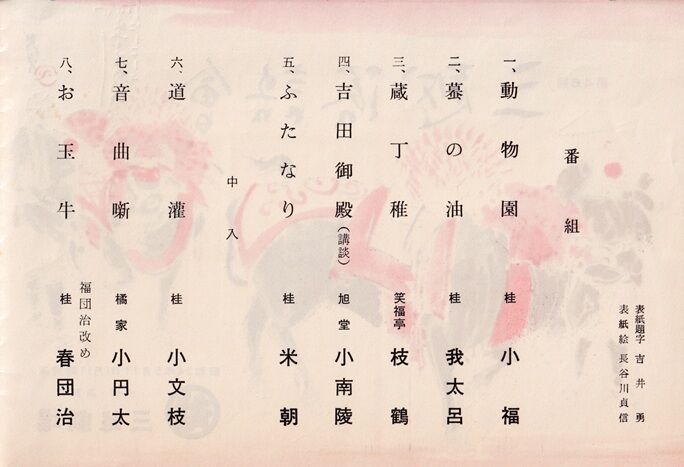 表紙題字 吉井 勇
表紙絵 長谷川貞信
番組
一、動物園 桂 小福
二、蟇の油 桂 我太呂
三、蔵丁稚 笑福亭 枝鶴
四、吉田御殿(講談) 旭堂 小南陵
五、ふたなり 桂 米朝
中入
六、道灌 桂 小文枝
七、音曲噺 橘家 小円太
福団治改め
八、お玉牛 桂 春団治